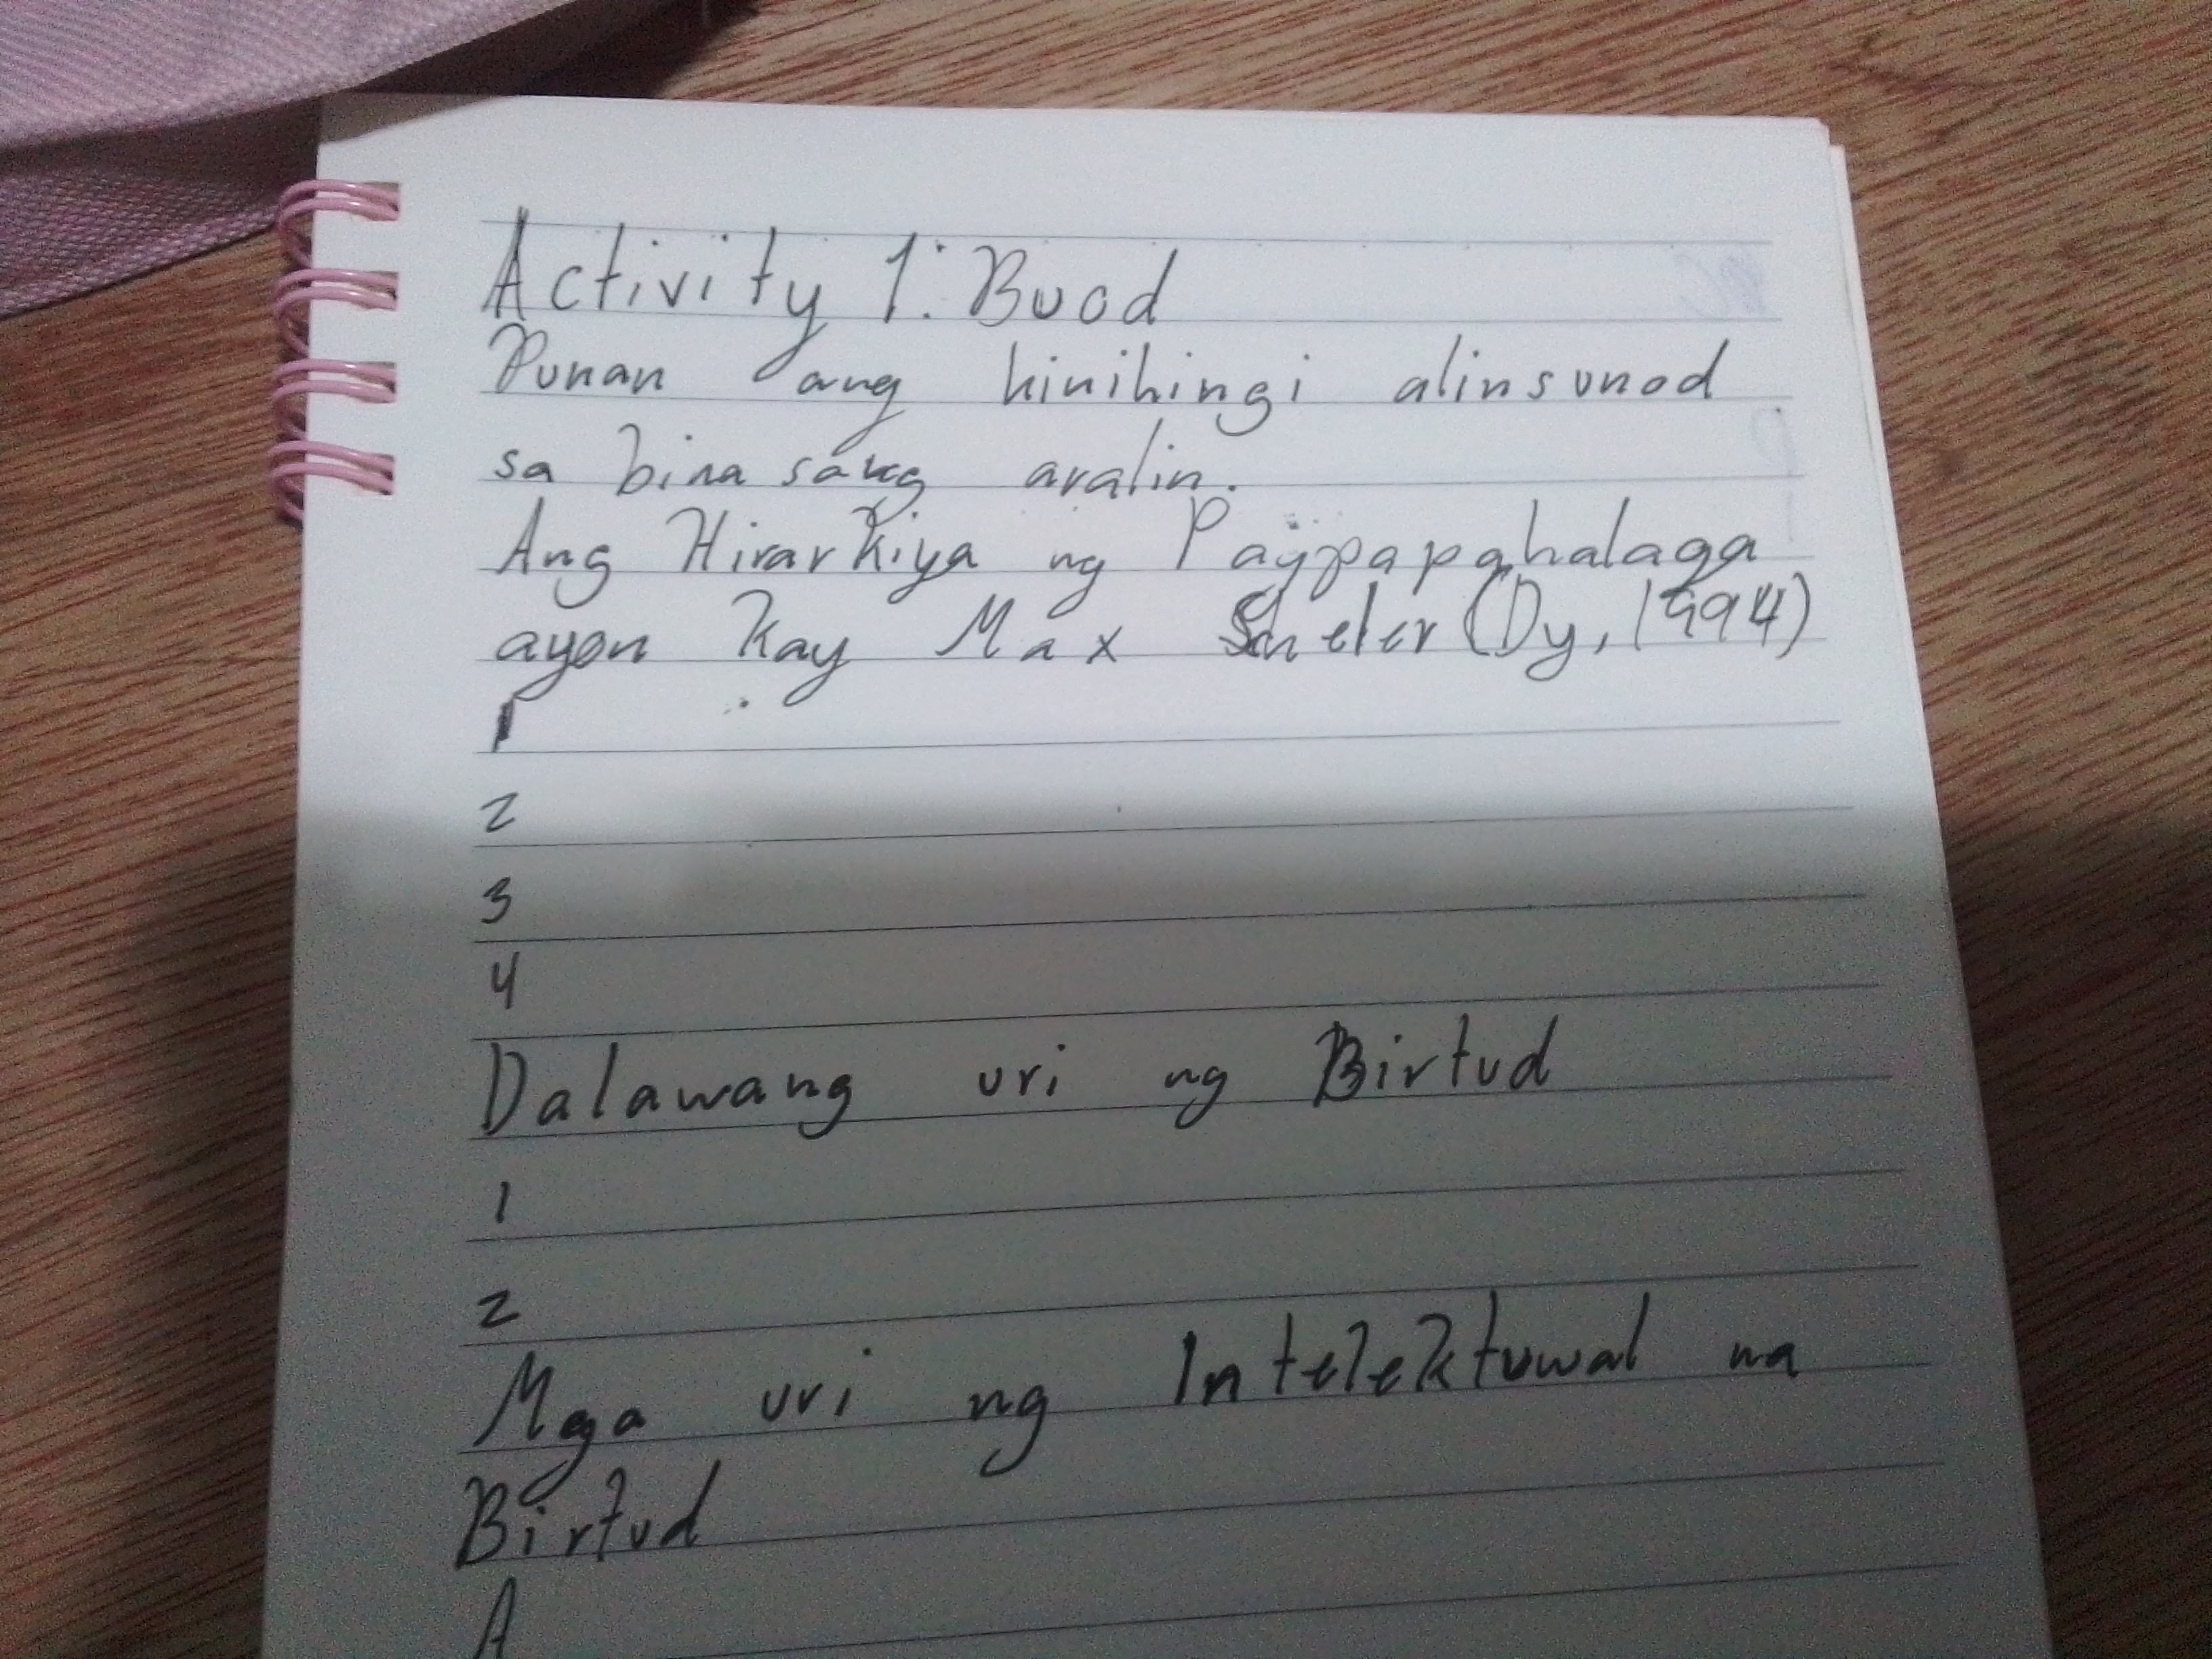 Activity 1: Buod
Punan ang hinihingi alinsunod
sa binasang aralin.
Ang Hirarkiya ng Pagpapahalaga
ayon kay Max Scheler (Dy, 1994)
1
2
3
4
Dalawang uri ng Birtud
1
2
Mga uri ng Intelektuwal na
Birtud
A